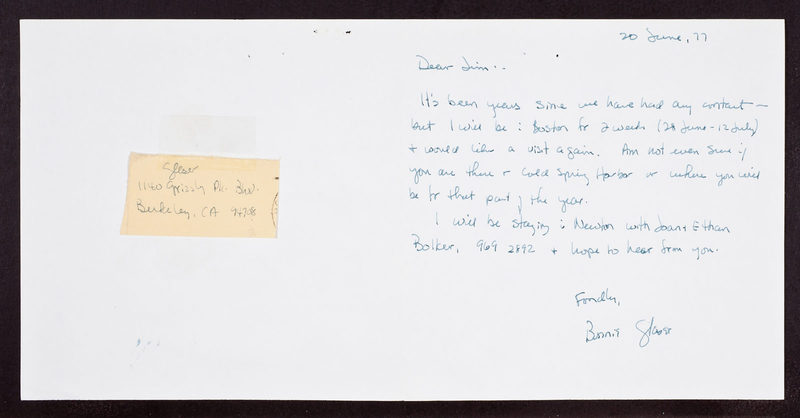 Glaser
1140 Grizzly Pk. Blvd.
Berkeley, CA 94708
20 June, 77
Dear Jim:
It's been years since we have had any contact —
but I will be in Boston for 2 weeks (28 June - 12 July)
+ would like a visit again. Am not even sure if
you are there or Cold Spring Harbor or where you will
be for that part of the year.
I will be staying in Newton with Joan + Ethan
Bolker, 969 2892 + hope to hear from you.
Fondly,
Bonnie Glaser